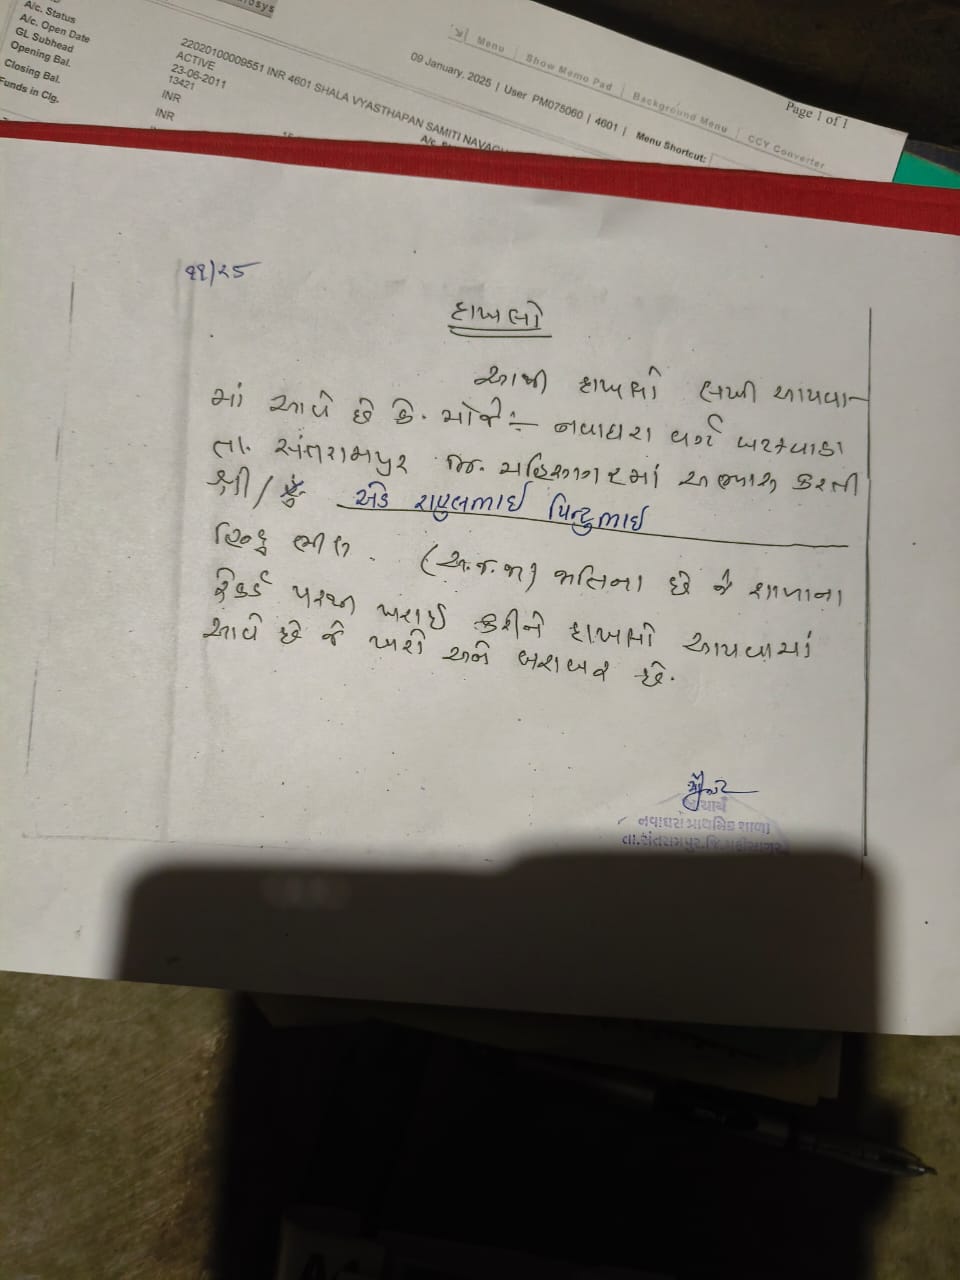 A/c. Status
A/c. Open Date
GL Subhead
Opening Bal.
Closing Bal.
Funds in Clg.
22020100009551 INR 4601 SHALA VYASTHAPAN SAMITI
ACTIVE
23-06-2011
13421
INR
INR
Menu | Show Memo Pad | Background Menu | CCY Converter
09 January, 2025 | User PM075060 | 4601 | Menu Shortcut:
Page 1 of 1
૧૧/૨૫
દાખલો
આથી દાખલો લખી આપવા
માં આવે છે કે. મોજે :- નવાઘરા વર્ગ
તા. સંતરામપુર જિ. મહિસાગરમાં અભ્યાસ કરતી
શ્રી/કુ રાહુલભાઈ પિન્ટુભાઈ
હિન્દુ ભીલ. (અ.જ.જા) જાતિના છે જે શાળાના
રેકર્ડ પરથી ખરાઈ કરીને દાખલો આપવામાં
આવે છે જે ખરો અને બરાબર છે.
આચાર્ય
નવાઘરા પ્રાથમિક શાળા
તા.સંતરામપુર,જિ.મહીસાગર